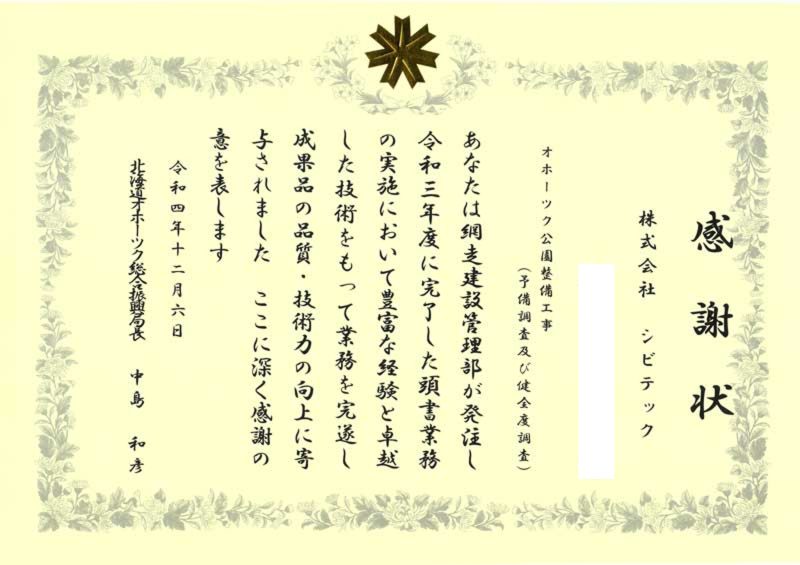 感謝状
株式会社 シビテック
オホーツク公園整備工事
(予備調査及び健全度調査)
あなたは網走建設管理部が発注し
令和三年度に完了した頭書業務
の実施において豊富な経験と卓越
した技術をもって業務を完遂し
成果品の品質・技術力の向上に寄
与されました ここに深く感謝の
意を表します
令和四年十二月六日
北海道オホーツク総合振興局長 中島 和彦